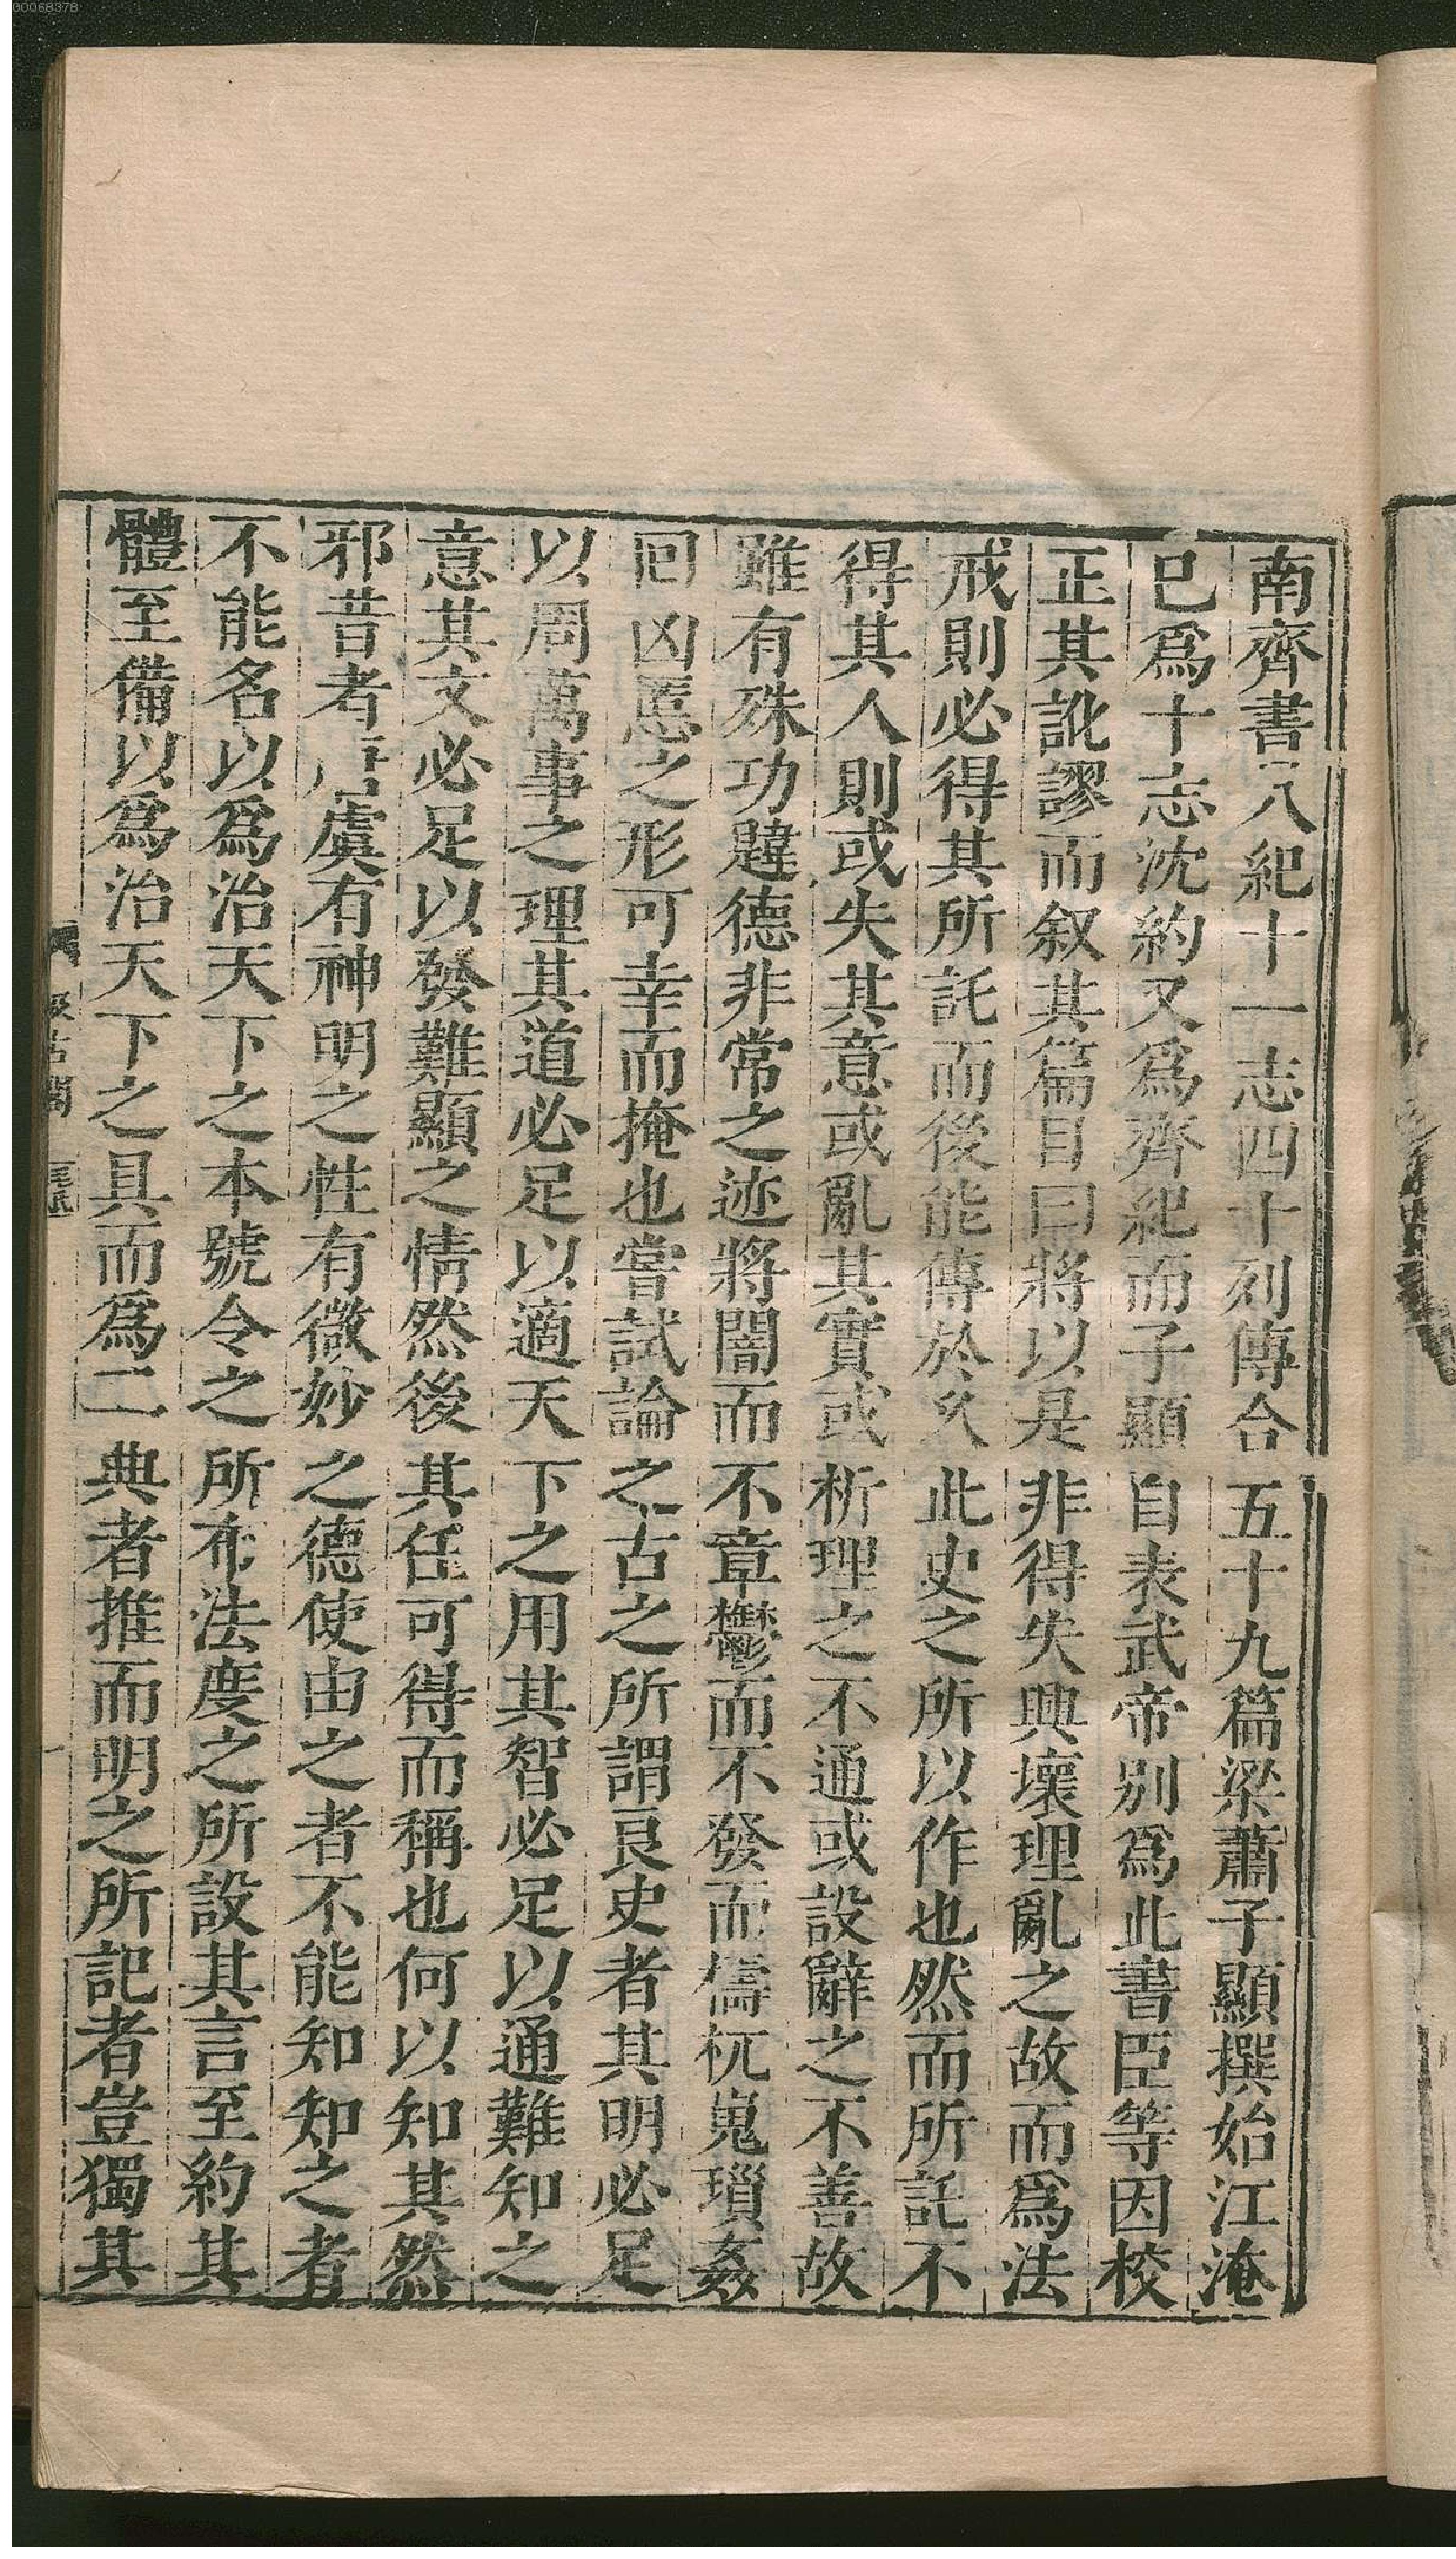 00068378
南齊書八紀十一志四十列傳合五十九篇梁蕭子顯撰始江淹
巳爲十志沈約又爲齊紀而子顯自表武帝別爲此書臣等因校
正其訛謬而叙其篇目曰將以是非得失興壞理亂之故而爲法
戒則必得其所託而後能傳於久此史之所以作也然而所託不
得其人則或失其意或亂其實或析理之不通或設辭之不善故
雖有殊功韙德非常之迹將闇而不章鬱而不發而檮杌嵬瑣姦
回凶慝之形可幸而掩也嘗試論之古之所謂良史者其明必足
以周萬事之理其道必足以適天下之用其智必足以通難知之
意其文必足以發難顯之情然後其任可得而稱也何以知其然
邪昔者唐虞有神明之性有微妙之德使由之者不能知知之者
不能名以爲治天下之本號令之所布法度之所設其言至約其
體至備以爲治天下之具而爲二典者推而明之所記者豈獨其
汲古閣
毛氏